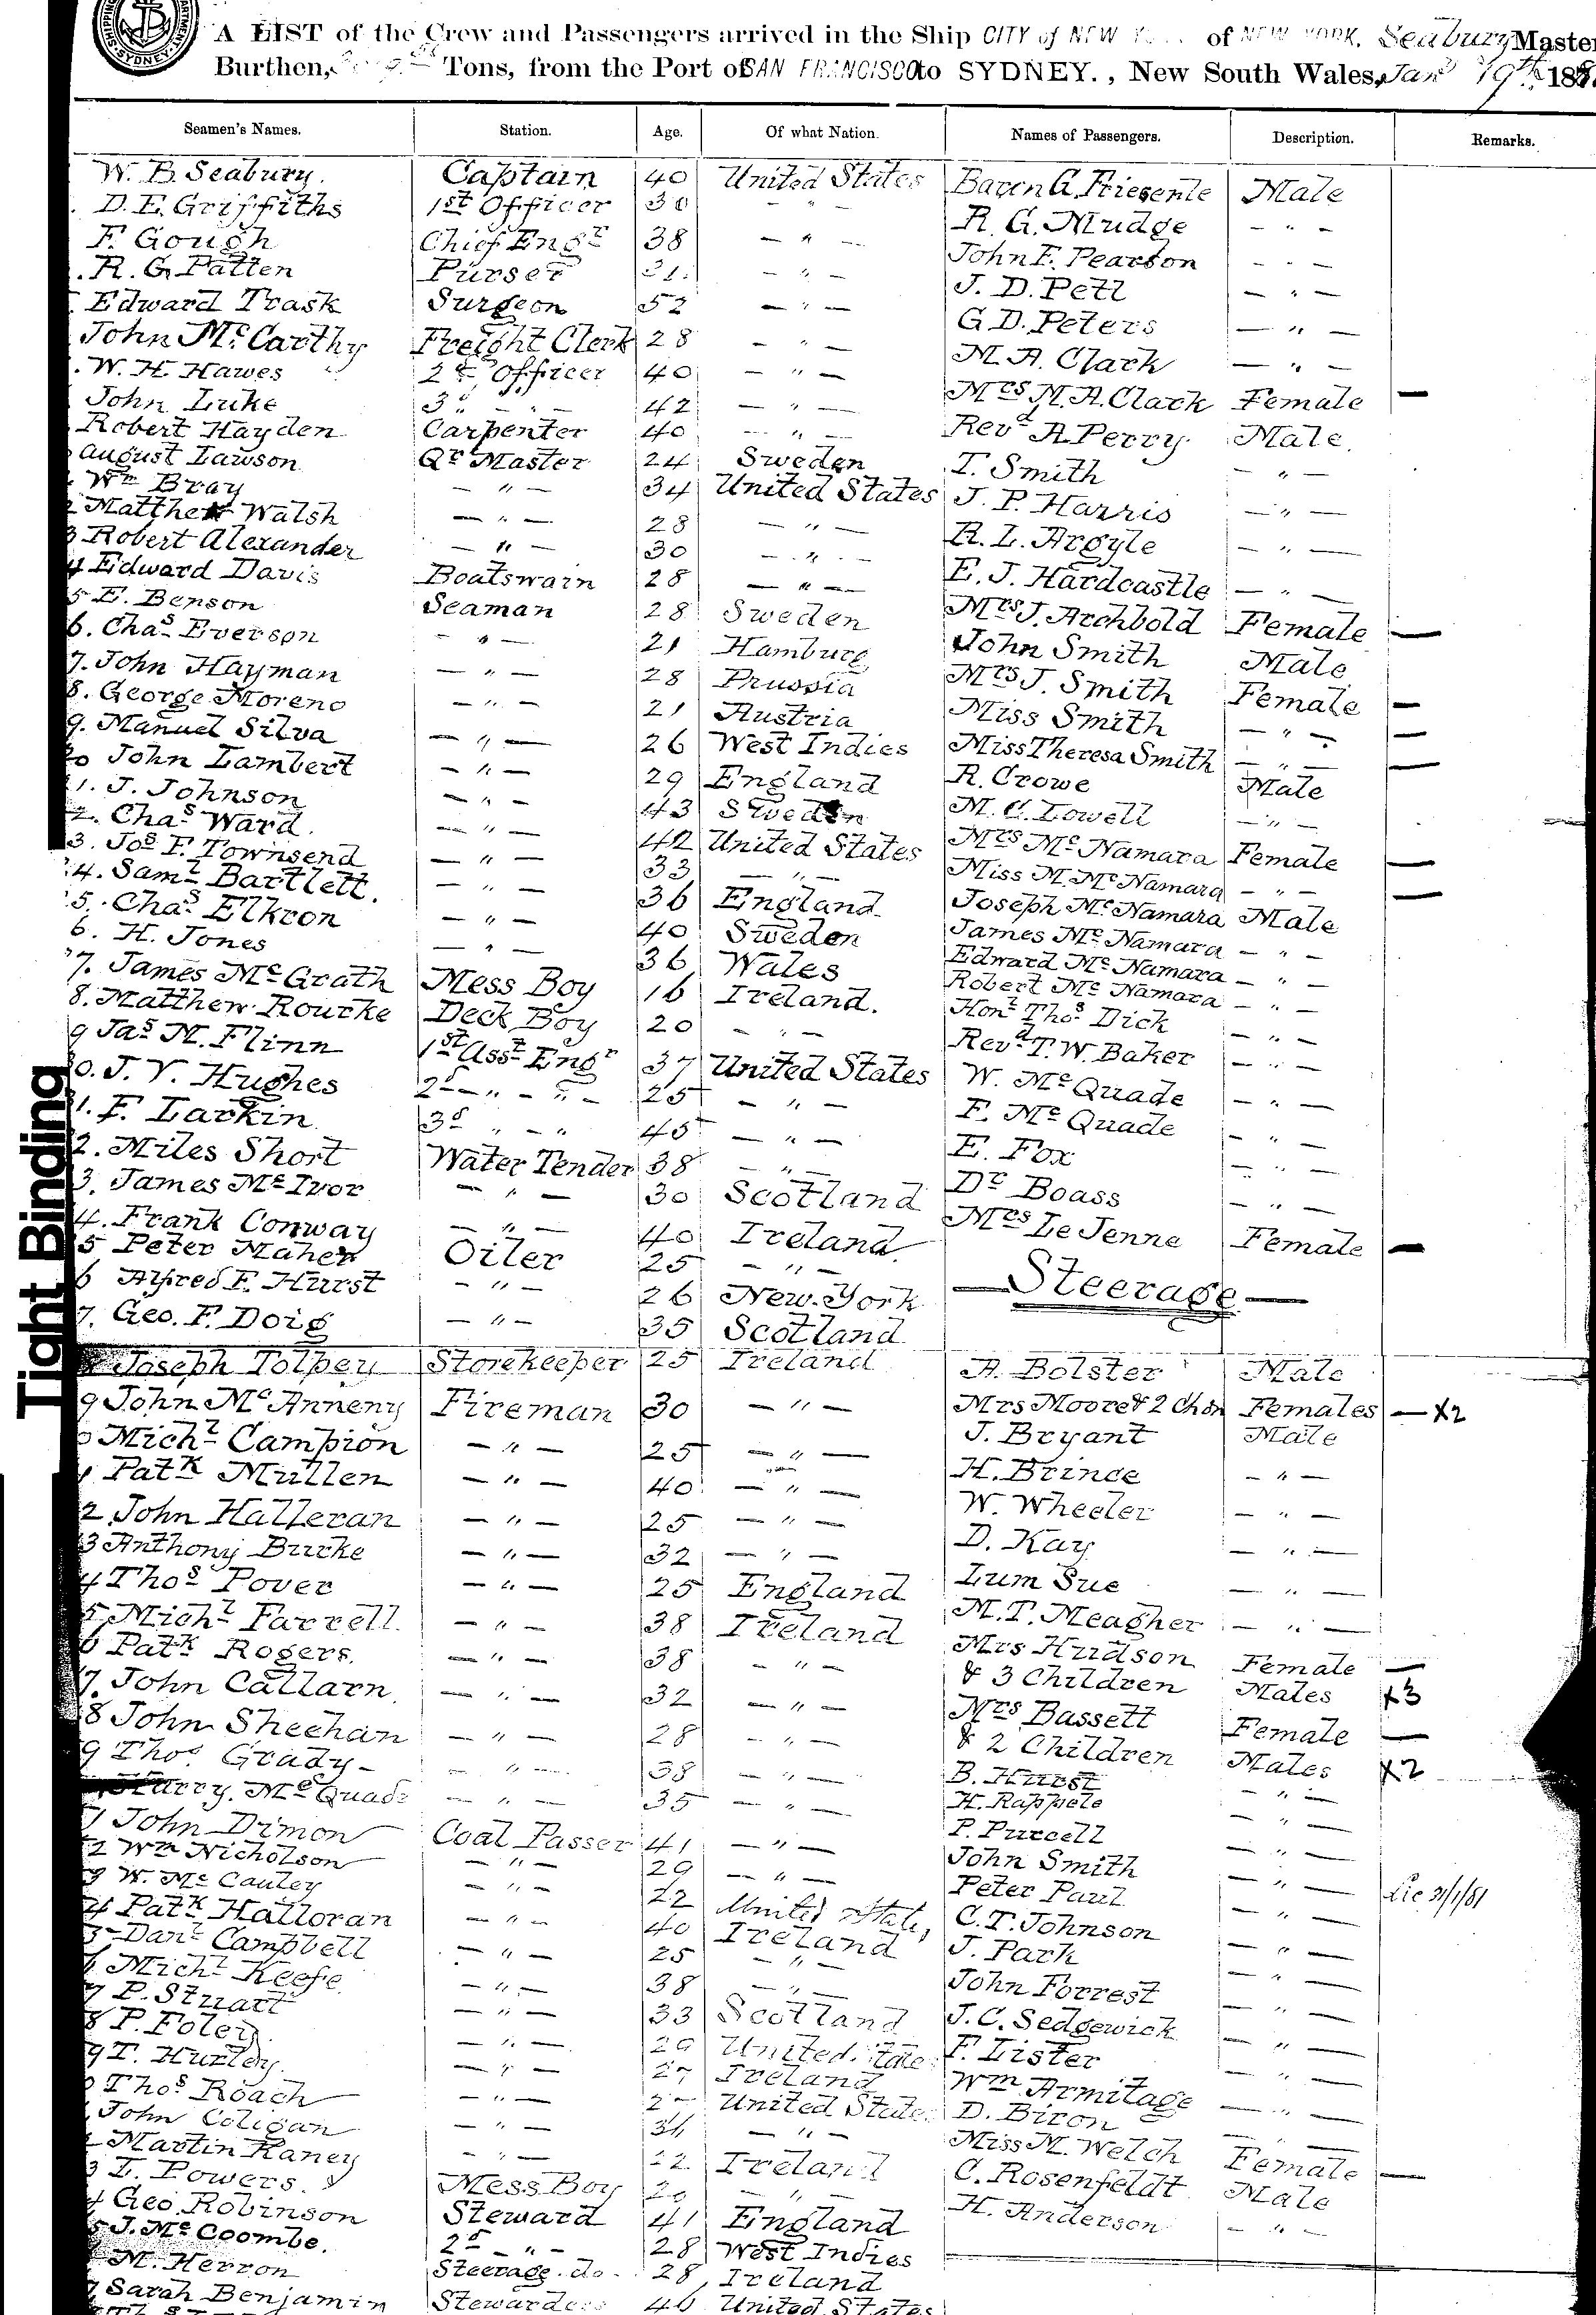 A LIST of the Crew and Passengers arrived in the Ship CITY of NEW of NEW YORK, Seabury Master
Burthen, Tons, from the Port of SAN FRANCISCO to SYDNEY., New South Wales, Jan 19th 188
Seamen's Names. Station. Age. Of what Nation. Names of Passengers. Description. Remarks.
W. B. Seabury. Captain 40 United States
D. E. Griffiths 1st Officer 30 - " -
F. Gough Chief Engr 38 - " -
R. G. Patten Purser 31 - " -
Edward Trask Surgeon 52 - " -
John McCarthy Freight Clerk 28 - " -
W. H. Hawes 2d Officer 40 - " -
John Luke 3d - " - 42 - " -
Robert Hayden Carpenter 40 - " -
August Lawson Qr Master 24 Sweden
Wm Bray - " - 34 United States
Matthew Walsh - " - 28 - " -
3 Robert Alexander - " - 30 - " -
4 Edward Davis Boatswain 28 - " -
5 E. Benson Seaman 28 Sweden
6. Chas Everson - " - 21 Hamburg
7. John Hayman - " - 28 Prussia
8. George Moreno - " - 21 Austria
9. Manuel Silva - " - 26 West Indies
20 John Lambert - " - 29 England
1. J. Johnson - " - 43 Sweden
2. Chas Ward. - " - 42 United States
3. Jos F. Townsend - " - 33 - " -
4. Saml Bartlett. - " - 36 England
5. Chas Elkron - " - 40 Sweden
6. H. Jones - " - 36 Wales
7. James McGrath Mess Boy 16 Ireland.
8. Matthew Rourke Deck Boy 20 - " -
9 Jas H. Flinn 1st Asst Engr 37 United States
0. J. V. Hughes 2d - " - " - 25 - " -
1. F. Larkin 3d " - " 45 - " -
2. Miles Short Water Tender 38 - " -
3. James McIvor - " - 30 Scotland
4. Frank Conway - " - 40 Ireland
5 Peter Maher Oiler 25 - " -
6 Alfred F. Hurst - " - 26 New York
7. Geo. F. Doig - " - 35 Scotland
Joseph Tolpey Storekeeper 25 Ireland
9 John McAnneny Fireman 30 - " -
0 Michl Campion - " - 25 - " -
1 Patk Mullen - " - 40 - " -
2 John Halleran - " - 25 - " -
3 Anthony Burke - " - 32 - " -
4 Thos Power - " - 25 England
5 Michl Farrell. - " - 38 Ireland
6 Patk Rogers. - " - 38 - " -
7. John Callarn - " - 32 - " -
8 John Sheehan - " - 28 - " -
9 Thos Grady - " - 38 - " -
Harry. McQuade - " - 35 - " -
1 John Dimon Coal Passer 41 - " -
2 Wm Nicholson - " - 29 - " -
3 W. McCauley - " - 22 United States
4 Patk Halloran - " - 40 Ireland
5 Danl Campbell - " - 25 - " -
6 Michl Keefe - " - 38 - " -
7 P. Stuart - " - 33 Scotland
8 P. Foley. - " - 29 United State
9 T. Hurley. - " - 27 Ireland
0 Thos Roach - " - 2 United State
John Coligan - " - 34 - " -
2 Martin Raney - " - 22 Ireland
3 L. Powers. Mess Boy 20 "
4 Geo. Robinson Steward 41 England
5 J. McCoombe. 2d - " - 28 West Indies
M. Herron Steerage. do. 28 Ireland
7 Sarah Benjamin Stewardess 46 United States
Baron G. Friesente Male
R. G. Mudge - " -
John F. Pearson - " -
J. D. Pell - " -
G. D. Peters - " -
M. A. Clark - " -
Mrs M. A. Clark Female —
Revd A. Perry Male.
T. Smith - " -
J. P. Harris - " -
R. L. Argyle - " -
E. J. Hardcastle - " -
Mrs J. Archbold Female —
John Smith Male
Mrs J. Smith Female —
Miss Smith - " - —
Miss Theresa Smith - " - —
R. Crowe Male
M. C. Lowell - " -
Mrs McNamara Female —
Miss M. McNamara - " - —
Joseph McNamara Male
James McNamara - " -
Edward McNamara - " -
Robert McNamara - " -
Honl Thos Dick - " -
Revd T. W. Baker - " -
W. McQuade - " -
F. McQuade - " -
E. Fox - " -
Dr Boass - " -
Mrs Le Jenne Female —
— Steerage —
A. Bolster Male
Mrs Moore & 2 Chdn Females — X2
J. Bryant Male
H. Brince - " -
W. Wheeler - " -
D. Kay - " -
Lum Sue - " -
M. T. Meagher - " -
Mrs Hudson Female —
& 3 Children Males X3
Mrs Bassett Female —
& 2 Children Males X2
B. Hurst - " -
H. Rappele - " -
P. Purcell - " -
John Smith - " -
Peter Paul - " - 21/1/81
C. T. Johnson - " -
J. Park - " -
John Forrest - " -
J. C. Sedgewick - " -
F. Lister - " -
Wm Armitage - " -
D. Biron - " -
Miss M. Welch Female —
C. Rosenfeldt Male
H. Anderson - " -
Tight Binding